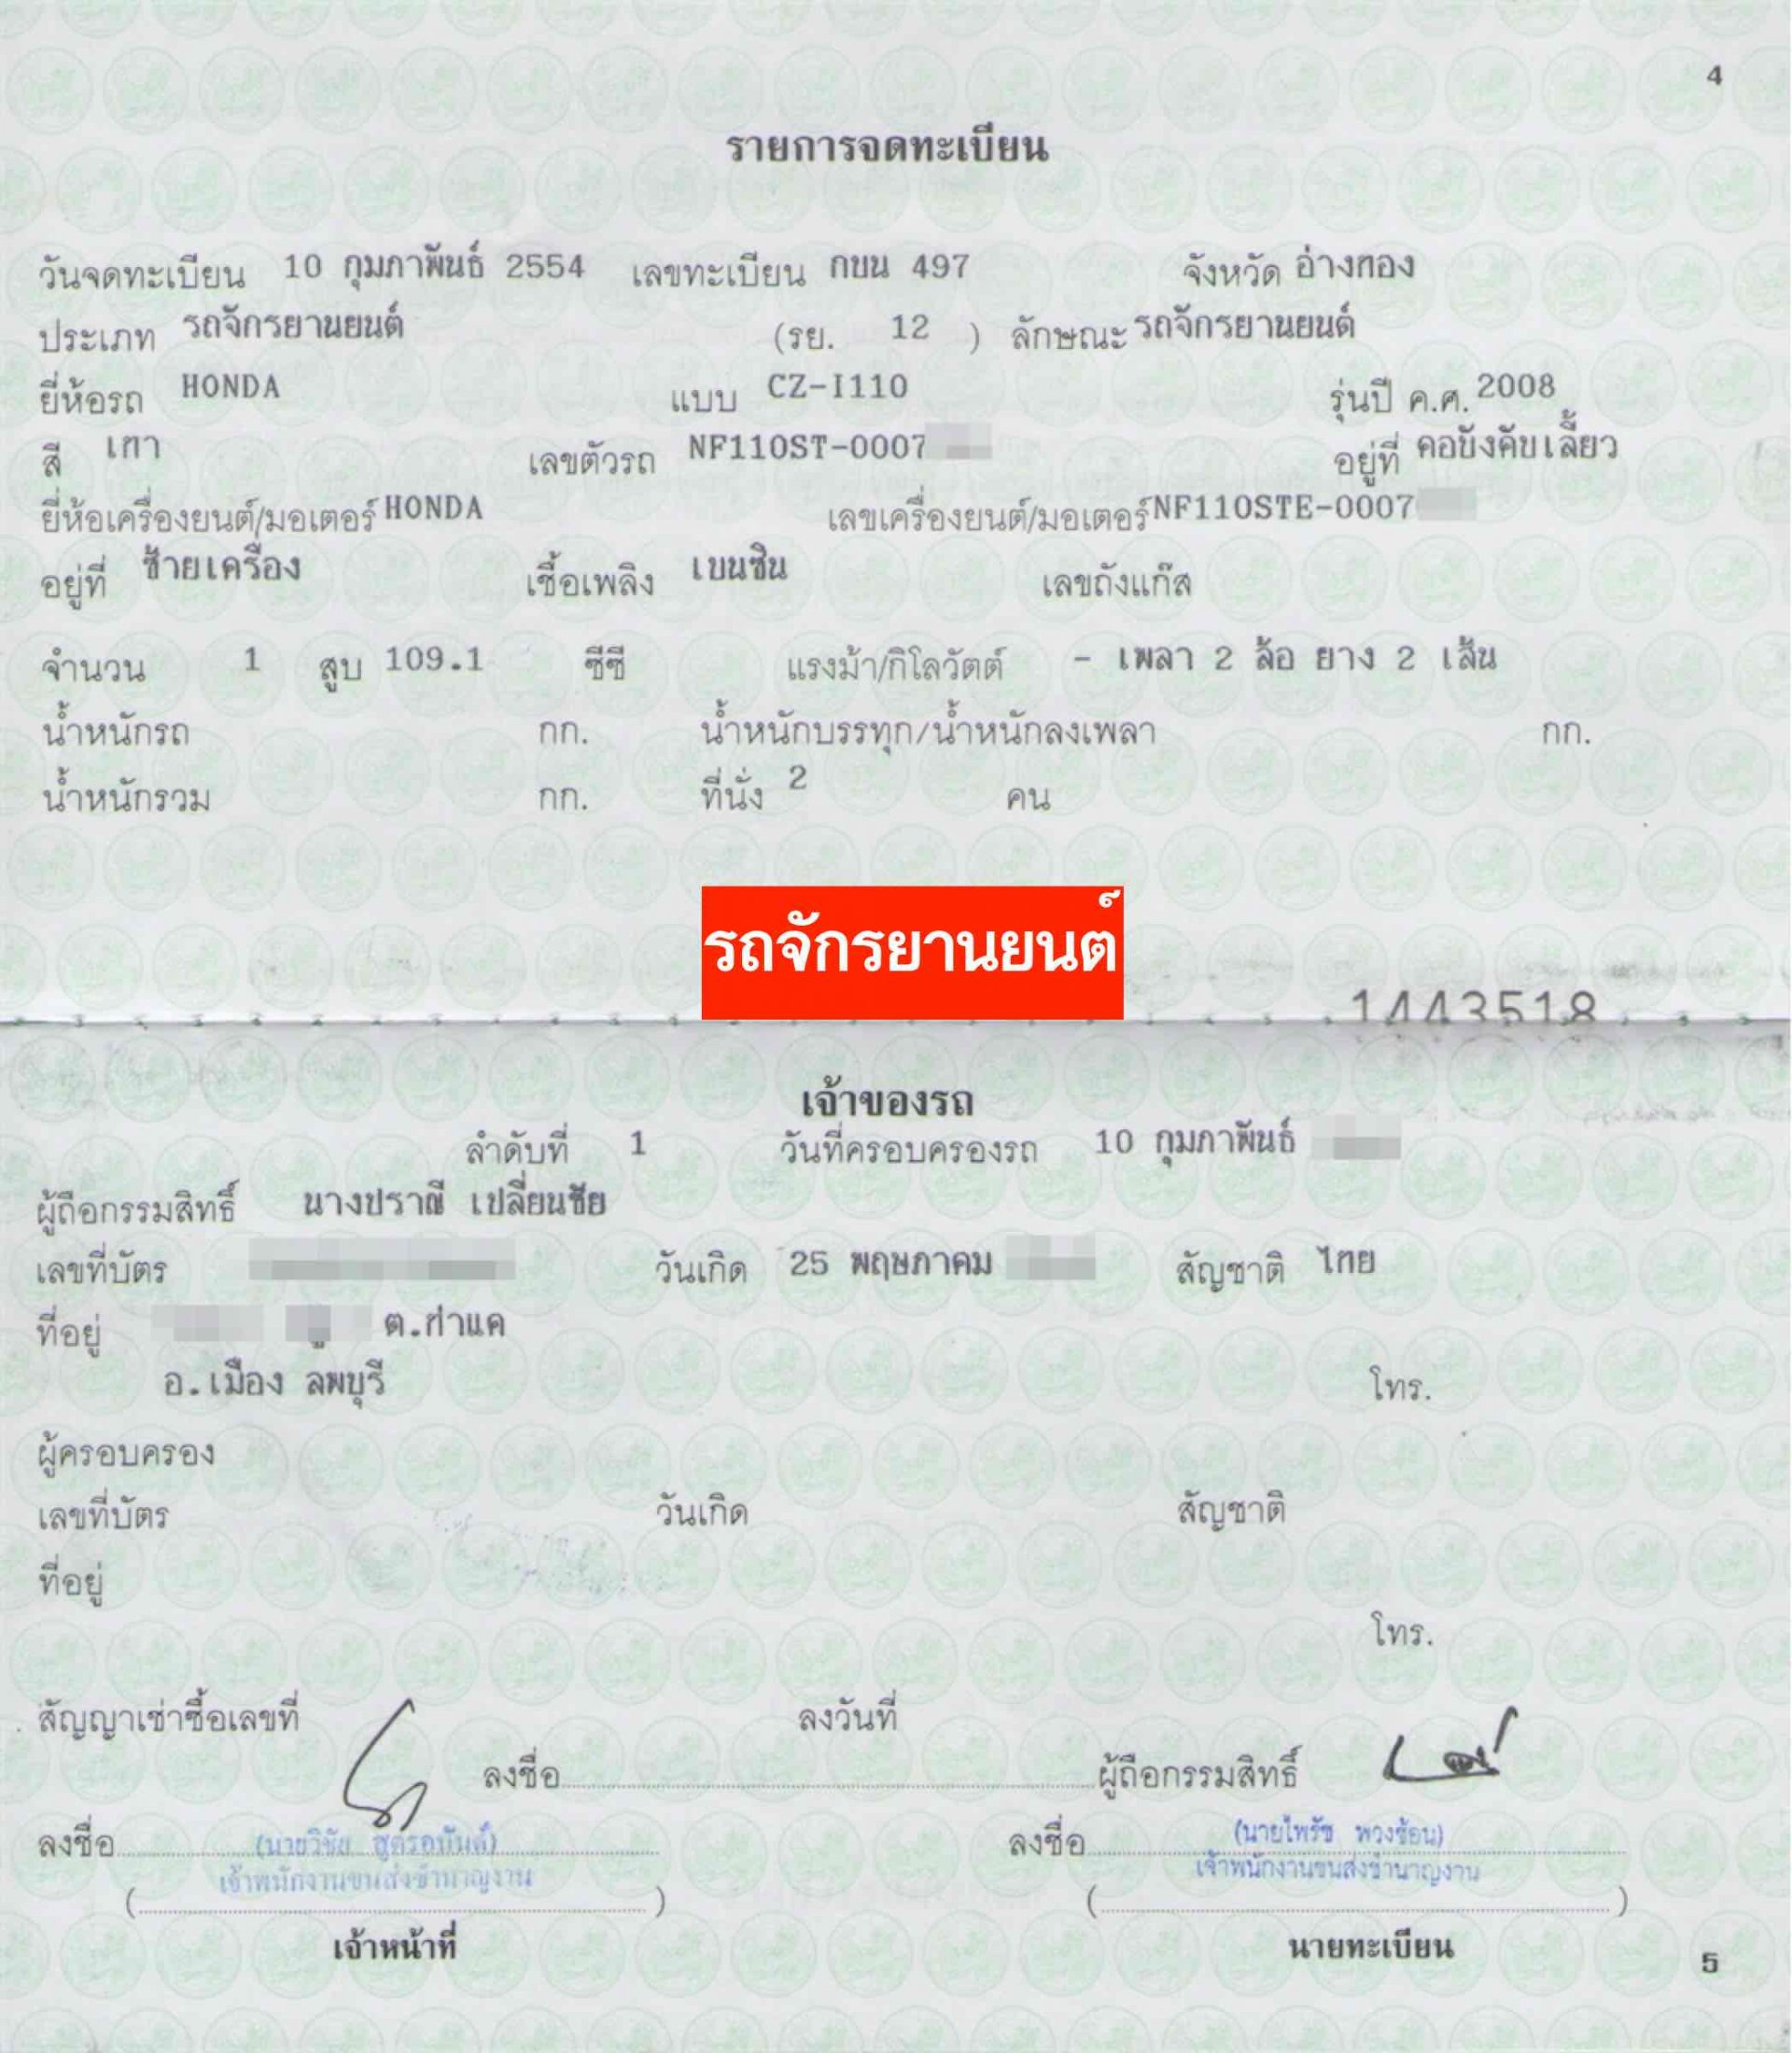 4
รายการจดทะเบียน
วันจดทะเบียน 10 กุมภาพันธ์ 2554 เลขทะเบียน กขน 497 จังหวัด อ่างทอง
ประเภท รถจักรยานยนต์ (รย. 12 ) ลักษณะ รถจักรยานยนต์
ยี่ห้อรถ HONDA แบบ CZ-I110 รุ่นปี ค.ศ. 2008
สี เทา เลขตัวรถ NF110ST-0007 อยู่ที่ คอบังคับเลี้ยว
ยี่ห้อเครื่องยนต์/มอเตอร์ HONDA เลขเครื่องยนต์/มอเตอร์ NF110STE-0007
อยู่ที่ ซ้ายเครื่อง เชื้อเพลิง เบนซิน เลขถังแก๊ส
จำนวน 1 สูบ 109.1 ซีซี แรงม้า/กิโลวัตต์ - เพลา 2 ล้อ ยาง 2 เส้น
น้ำหนักรถ กก. น้ำหนักบรรทุก/น้ำหนักลงเพลา กก.
น้ำหนักรวม กก. ที่นั่ง 2 คน
รถจักรยานยนต์
1443518
เจ้าของรถ
ลำดับที่ 1 วันที่ครอบครองรถ 10 กุมภาพันธ์
ผู้ถือกรรมสิทธิ์ นางปราณี เปลี่ยนชัย
เลขที่บัตร วันเกิด 25 พฤษภาคม สัญชาติ ไทย
ที่อยู่ ต.ท่าแค
อ.เมือง ลพบุรี โทร.
ผู้ครอบครอง
เลขที่บัตร วันเกิด สัญชาติ
ที่อยู่
โทร.
สัญญาเช่าซื้อเลขที่ ลงวันที่
ลงชื่อ ผู้ถือกรรมสิทธิ์
ลงชื่อ (นายวิชัย ลงชื่อ (นายไพรัช พวงช้อน)
เจ้าพนักงานขนส่งชำนาญงาน เจ้าพนักงานขนส่งชำนาญงาน
( ) ( )
เจ้าหน้าที่ นายทะเบียน
5